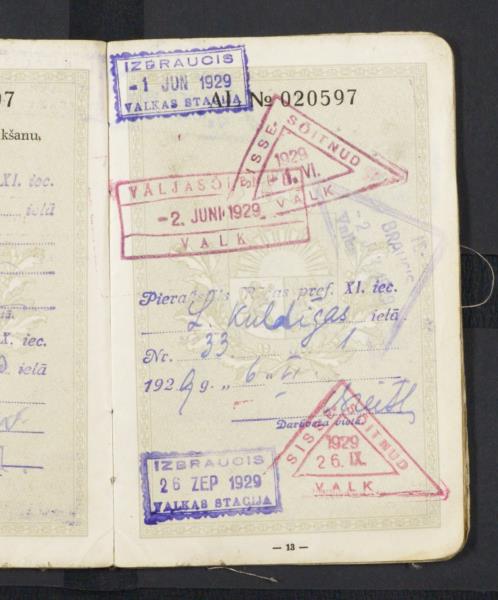 97
kšanu,
XI. iec.
ielā
X. iec.
ielā
IZBRAUCIS
-1 JUN 1929
VALKAS STACIJA
AI. № 020597
SISSE SÕITNUD
1929
1. VI.
VALK
VÄLJASÕ
-2. JUNI 1929
VALK
IE-
BRAUCIS
-2
1929
Valkas
Pierakstīts Rīgas pref. XI. iec.
L. Kuldīgas ielā
Nr. 33 1
1929 g. „ 6
Darbveža vietā
SISSE SÕITNUD
1929
26. IX.
VALK
IZBRAUCIS
26 ZEP 1929
VALKAS STACIJA
— 13 —